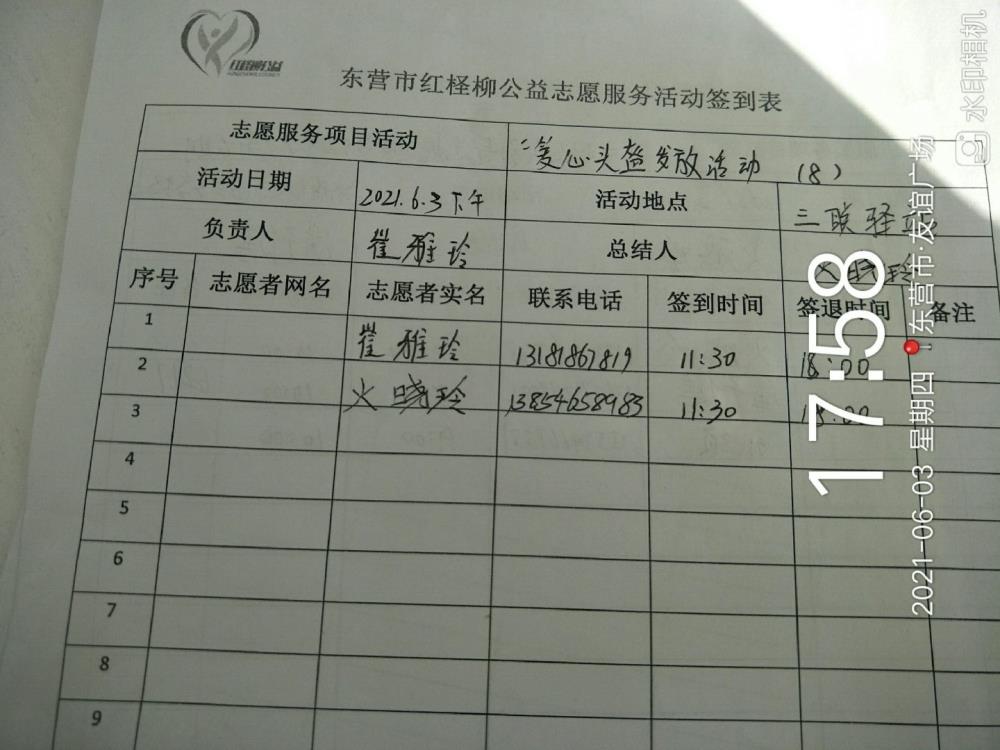 东营市红柽柳公益志愿服务活动签到表
志愿服务项目活动 爱心头盔发放活动 (8)
活动日期 2021.6.3下午 活动地点 三联驿站
负责人 崔雅玲 总结人 火晓玲
序号 志愿者网名 志愿者实名 联系电话 签到时间 签退时间 备注
1 崔雅玲 13181867819 11:30 18:00
2 火晓玲 13854658983 11:30 18:00
3
4
5
6
7
8
9
17:58
2021-06-03 星期四 东营市·友谊广场
水印相机